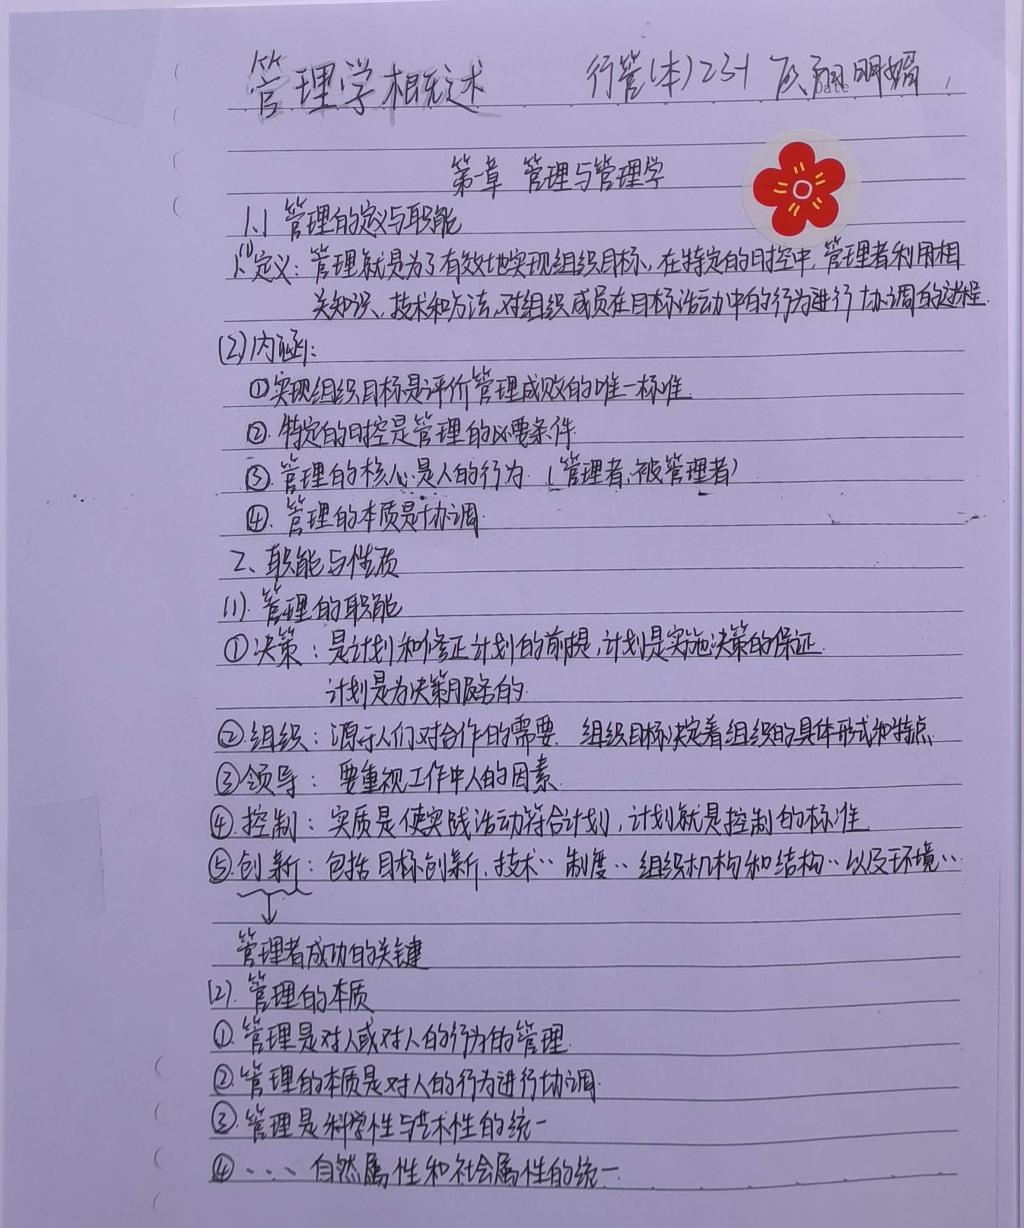 管理学概述 行管(本)23-1 明娟
第一章 管理与管理学
1.1 管理的定义与职能
(1) 定义：管理就是为了有效地实现组织目标，在特定的时控中，管理者利用相
关知识、技术和方法，对组织成员在目标活动中的行为进行协调的过程.
(2)内涵：
①实现组织目标是评价管理成败的唯一标准.
②. 特定的时控是管理的必要条件
③. 管理的核心是人的行为.（管理者、被管理者）
④. 管理的本质是协调
2、职能与性质
(1). 管理的职能
①决策：是计划和修正计划的前提，计划是实施决策的保证.
计划是为决策服务的.
②组织：源于人们对合作的需要. 组织目标决定着组织的具体形式和特点
③领导：要重视工作中人的因素.
④. 控制：实质是使实践活动符合计划，计划就是控制的标准
⑤. 创新：包括目标创新、技术‥ 制度‥ 组织机构和结构‥ 以及环境‥
管理者成功的关键
(2). 管理的本质
①. 管理是对人或对人的行为的管理.
②. 管理的本质是对人的行为进行协调.
③. 管理是科学性与艺术性的统一
④、、、、自然属性和社会属性的统一